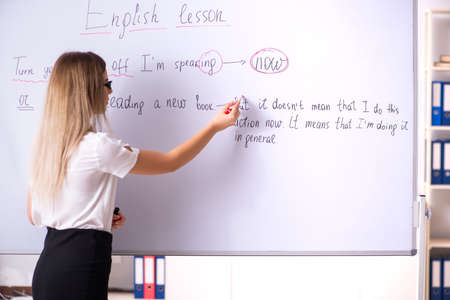 English lesson
Turn off I'm speaking → now
or reading a new book — but it doesn't mean that I do this
action now. It means that I'm doing it
in general.